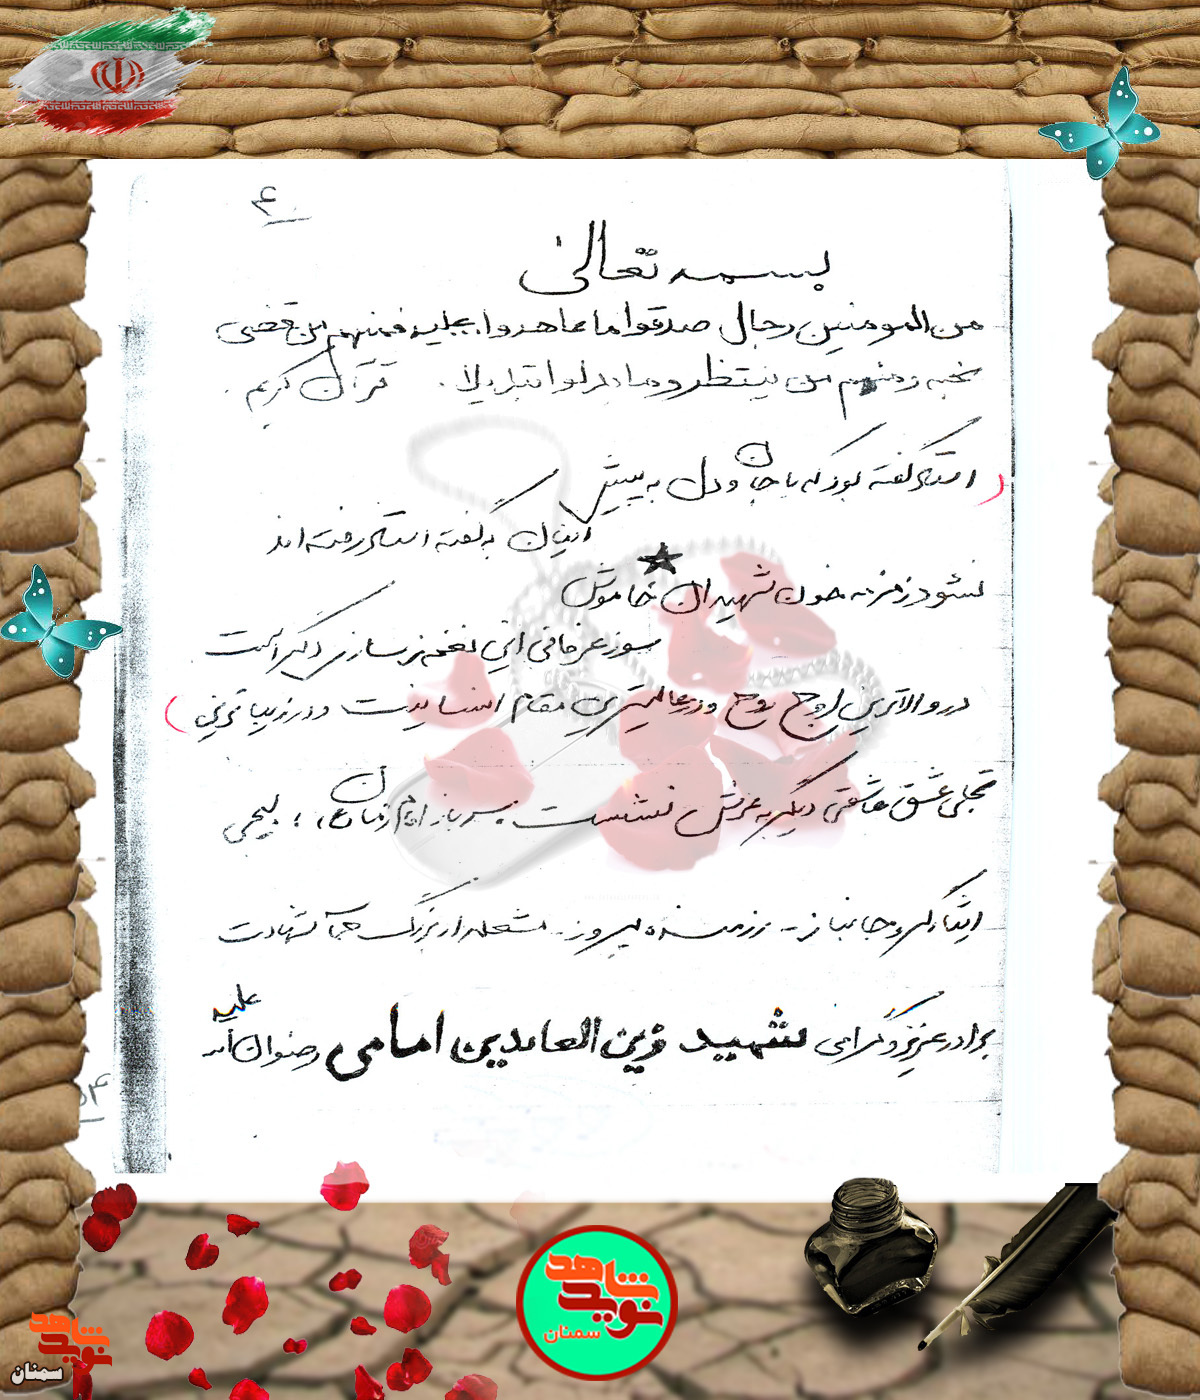 ۴
بسمه تعالی
من المومنین رجال صدقوا ما عاهدوا علیه فمنهم من قضی
نحبه و منهم من ینتظر و ما بدلوا تبدیلا . قرآن کریم .
( استاد گفته بود که با جان و دل به پیش
اینان به گفته استاد رفته اند
نشود زمزمه خون شهیدان خاموش
سوز عرفانی این نغمه ز سازی دگر است
در والاترین اوج روح و در عالیترین مقام انسانیت و در زیباترین )
تجلی عشق عاشقی دیگر به عرش نشست . سرباز امام زمان (ع) ، بسیجی
ایثارگر و جانباز - رزمنده پیروز - مشعلدار بزرگ شهادت
برادر عزیز و گرامی شهید زین العابدین امامی رضوان الله علیه
نوید شاهد
سمنان
نوید شاهد
سمنان